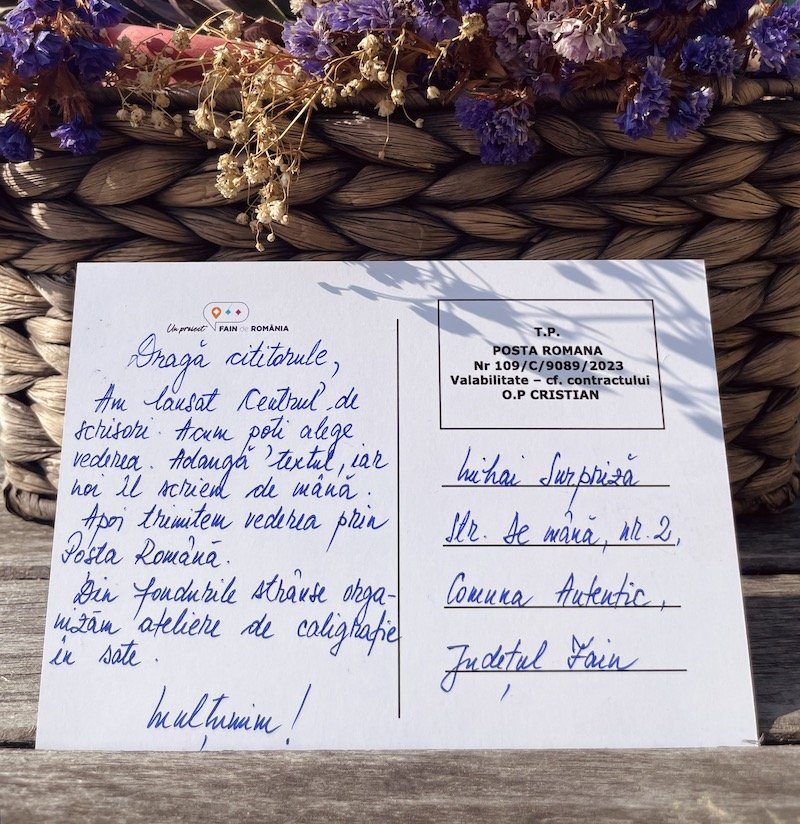 Un proiect FAIN de ROMÂNIA
Dragă cititorule,
Am lansat Centrul de
scrisori. Acum poți alege
vederea. Adaugă textul, iar
noi îl scriem de mână.
Apoi trimitem vederea prin
Poșta Română.
Din fondurile strânse orga-
nizăm ateliere de caligrafie
în sate.
Mulțumim!
T.P.
POSTA ROMANA
Nr 109/C/9089/2023
Valabilitate – cf. contractului
O.P CRISTIAN
Mihai Surpriză
Str. De mână, nr. 2,
Comuna Autentic,
Județul Fain